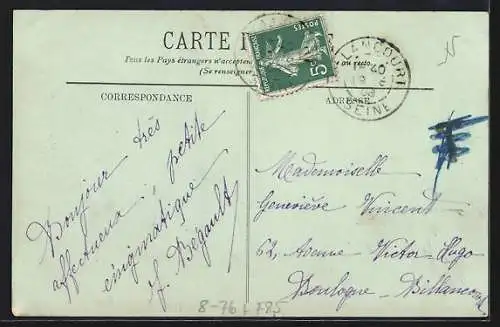 CARTE
Tous les Pays étrangers n'acceptent
au recto
(Se renseigner
CORRESPONDANCE
ADRESSE
POSTES
5
LANCOURT
40
SEINE
Bonjour très
affectueux, petite
énigmatique
J. Bégault
Mademoiselle
Geneviève Vincent
62, Avenue Victor-Hugo
Boulogne-Billancourt
8-76
785